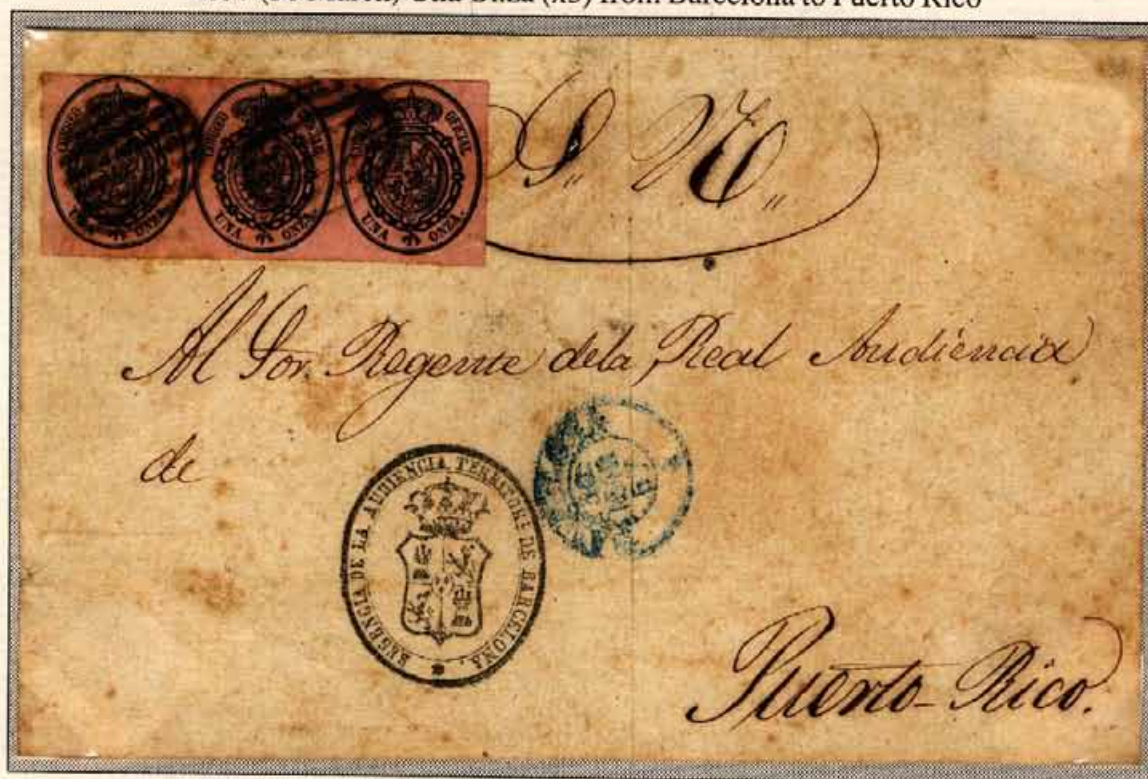 Una Onza (x3) from Barcelona to Puerto Rico
CORREO OFICIAL
UNA ONZA.
CORREO OFICIAL
UNA ONZA.
CORREO OFICIAL
UNA ONZA.
S. N.
Al Sor. Regente dela Real Audiencia
de
REGENCIA DE LA AUDIENCIA TERRITORL DE BARCELONA.
Puerto-Rico.